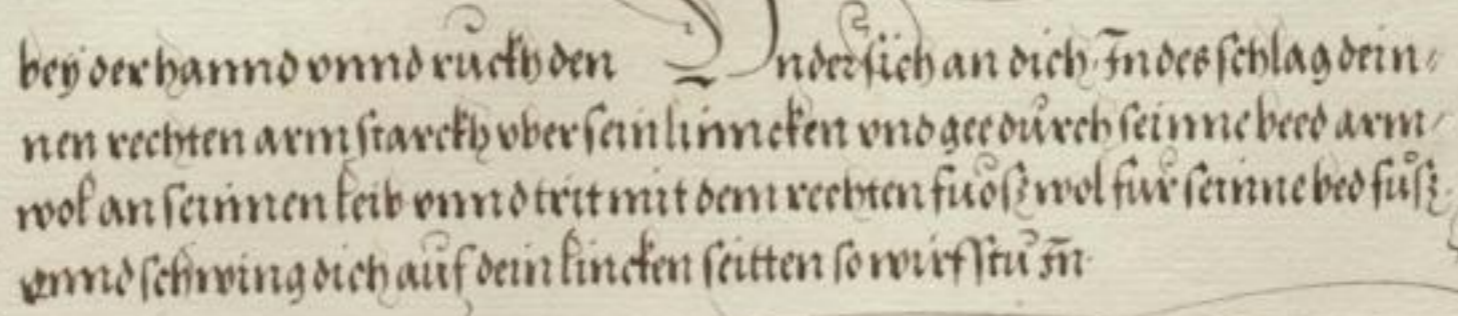 bey der hannd vnnd ruckh den Vndersich an dich. Indes schlag dein-
nen rechten arm starckh vber sein linncken vnd gee durch seinne beed arm
wol an seinnen leib vnnd trit mit dem rechten fuosz wol fur seinne bed fusz
vnnd schwing dich auf dein lincken seitten so wirfstu In